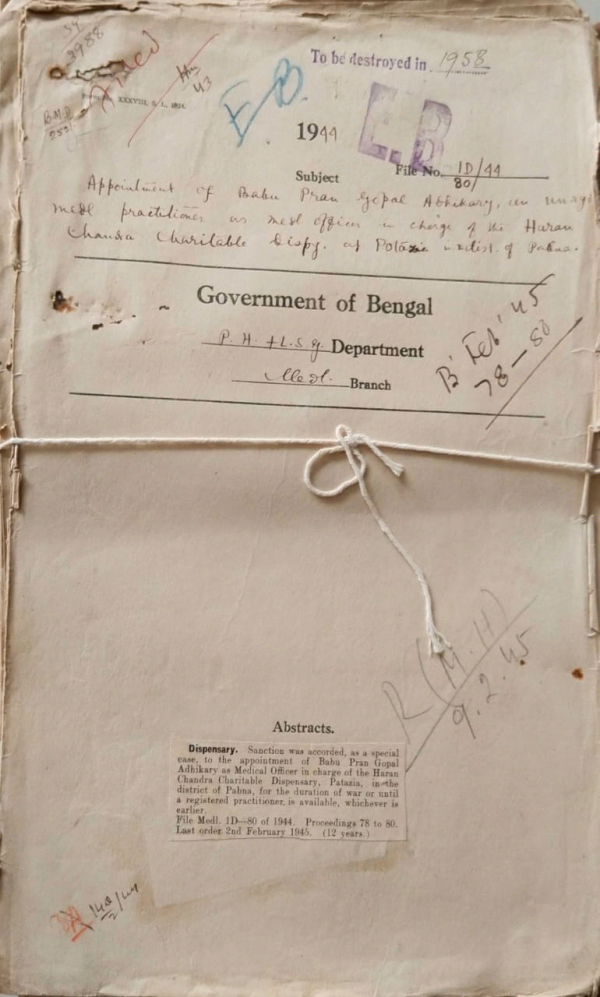 To be destroyed in 1958
Aimed
43
XXXVIII
E B
E.B
1944
Subject
File No. 1D/44
80/
Appointment of Babu Pran Gopal Adhikary, an unregd
medl practitioner as medl officer in charge of the Haran
Chandra Charitable Dispy. at Potazia in dist. of Pabna.
Government of Bengal
P. H. + L. S. G. Department
Medl. Branch
B' Feb' 45
78-80
R (M.H)
9.2.45
Abstracts.
Dispensary. Sanction was accorded, as a special
case, to the appointment of Babu Pran Gopal
Adhikary as Medical Officer in charge of the Haran
Chandra Charitable Dispensary, Patazia, in the
district of Pabna, for the duration of war or until
a registered practitioner is available, whichever is
earlier.
File Medl. 1D—80 of 1944. Proceedings 78 to 80.
Last order 2nd February 1945. (12 years.)